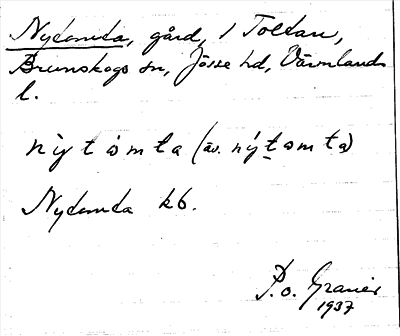 Nytomta, gård, i Toltan,
Brunskogs sn, Jösse hd, Värmlands
l.
nỳtòmta (äv. nýtomta)
Nytomta kb.
P.o. Graner
1937